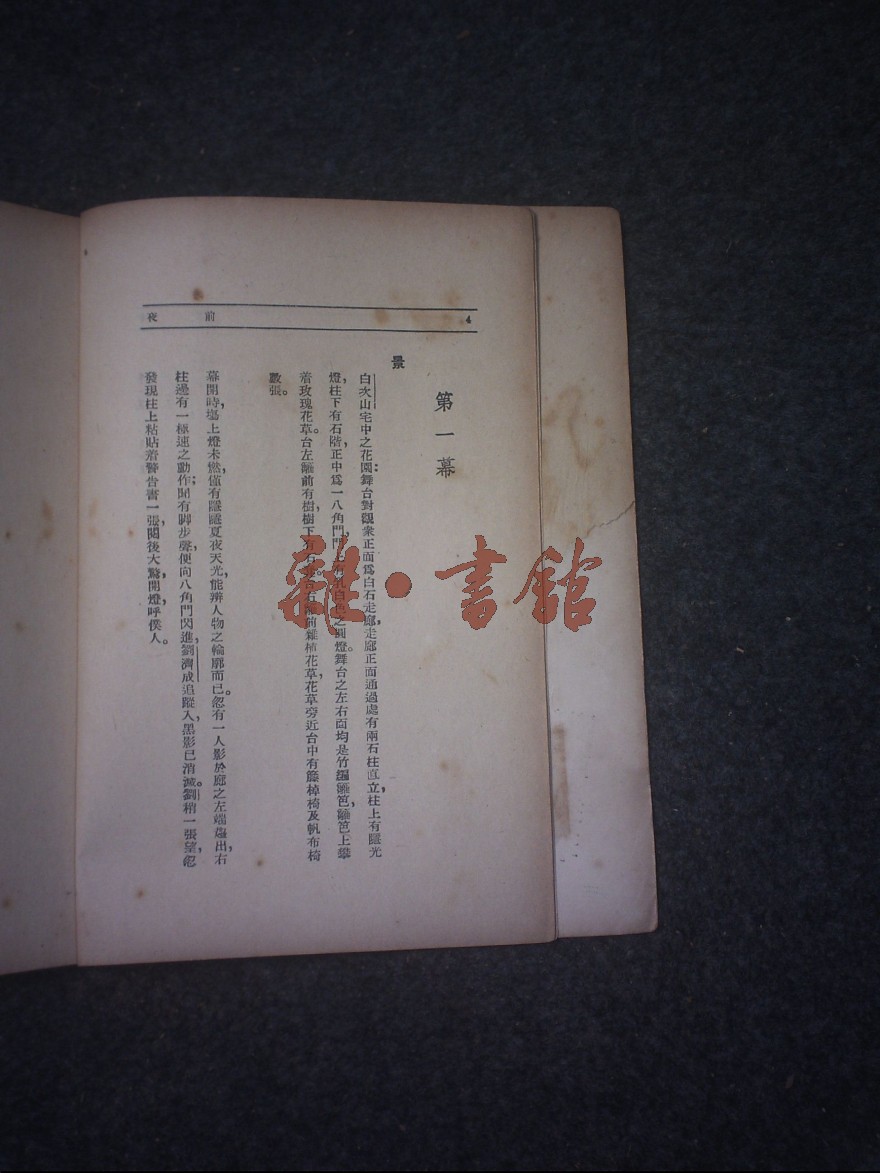 前夜
4
第一幕
景
白次山宅中之花園：舞台對觀衆正面爲白石走廊，走廊正面通過處有兩石柱直立，柱上有隱光
燈，柱下有石階，正中爲一八角門，門上有乳白色之圓燈。舞台之左右面均是竹編籬笆，籬笆上攀
着玫瑰花草。台左籬前有樹，樹下有石台右籬前雜植花草，花草旁近台中有籐棹椅及帆布椅
數張。
幕開時，場上燈未燃，僅有隱隱夏夜天光，能辨人物之輪廓而已。忽有一人影於廊之左端躡出，右
柱邊有一極速之動作；聞有脚步聲，便向八角門閃進，劉濟成追蹤入，黑影已消滅。劉稍一張望，忽
發現柱上粘貼着警告書一張，閱後大驚，開燈，呼僕人。
雜·書館